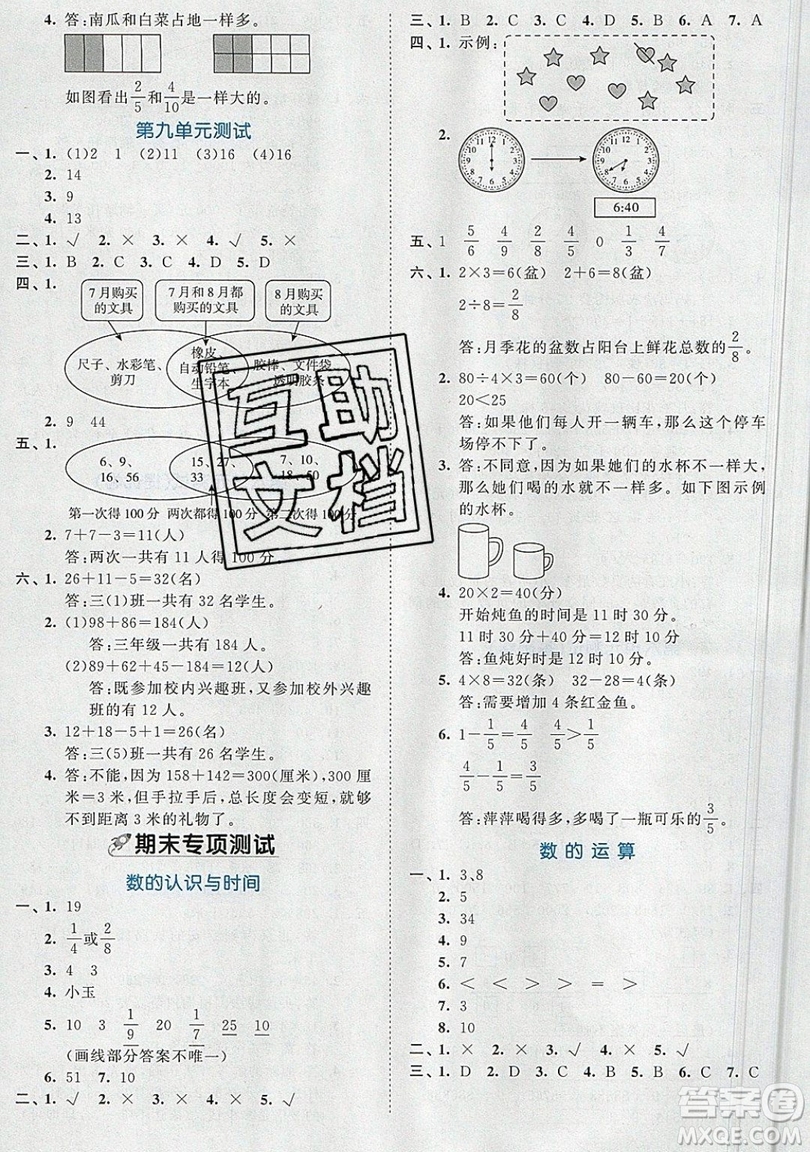 4. 答:南瓜和白菜占地一样多。
如图看出2/5和4/10是一样大的。
第九单元测试
一、1. (1)2 1 (2)11 (3)16 (4)16
2. 14
3. 9
4. 13
二、1. √ 2. × 3. × 4. √ 5. ×
三、1. B 2. C 3. C 4. D 5. D
四、1. 7月购买的文具 7月和8月都购买的文具 8月购买的文具
尺子、水彩笔、剪刀 橡皮、自动铅笔、生字本 胶棒、文件袋、透明胶条
2. 9 44
五、1. 6、9、16、56 15、27、33 7、10、18、50
第一次得100分 两次都得100分 第二次得100分
2. 7+7-3=11(人)
答:两次一共有11人得100分。
六、1. 26+11-5=32(名)
答:三(1)班一共有32名学生。
2. (1)98+86=184(人)
答:三年级一共有184人。
(2)89+107-184=12(人)
答:既参加校内兴趣班,又参加校外兴趣
班的有12人。
3. 12+18-5+1=26(名)
答:三(5)班一共有26名学生。
4. 答:不能,因为158+142=300(厘米),300厘
米=3米,但手拉手后,总长度会变短,就够
不到距离3米的礼物了。
期末专项测试
数的认识与时间
一、1. 19
2. 1/4或2/8
3. 4 3
4. 小玉
5. 10 3 1/9 1/7 25 10
(画线部分答案不唯一)
6. 51 7. 10
二、1. √ 2. × 3. × 4. × 5. √
三、1. B 2. C 3. C 4. D 5. B 6. A 7. A
四、1. 示例:
2.
6:40
五、1 5/6 4/9 2/5 4/5 0 1/3 4/7
六、1. 2×3=6(盆) 2+6=8(盆)
2÷8=2/8
答:月季花的盆数占阳台上鲜花总数的2/8。
2. 80÷4×3=60(个) 80-60=20(个)
20<25
答:如果他们每人开一辆车,那么这个停车
场停不下了。
3. 答:不同意,因为如果她们的水杯不一样大,
那么她们喝的水就不一样多。如下图示例
的水杯。
4. 20×2=40(分)
开始炖鱼的时间是11时30分。
11时30分+40分=12时10分
答:鱼炖好时是12时10分。
5. 4×8=32(条) 32-28=4(条)
答:需要增加4条红金鱼。
6. 1-1/5=4/5 4/5>1/5
4/5-1/5=3/5
答:萍萍喝得多,多喝了一瓶可乐的3/5。
数的运算
一、1. 3、8
2. 5
3. 34
4. 9
5. 7
6. < < > > = >
7. 3
8. 10
二、1. × 2. × 3. √ 4. √ 5. √
三、1. C 2. B 3. A 4. C 5. B 6. C 7. C
互助文档
答案圈
MXQE.COM